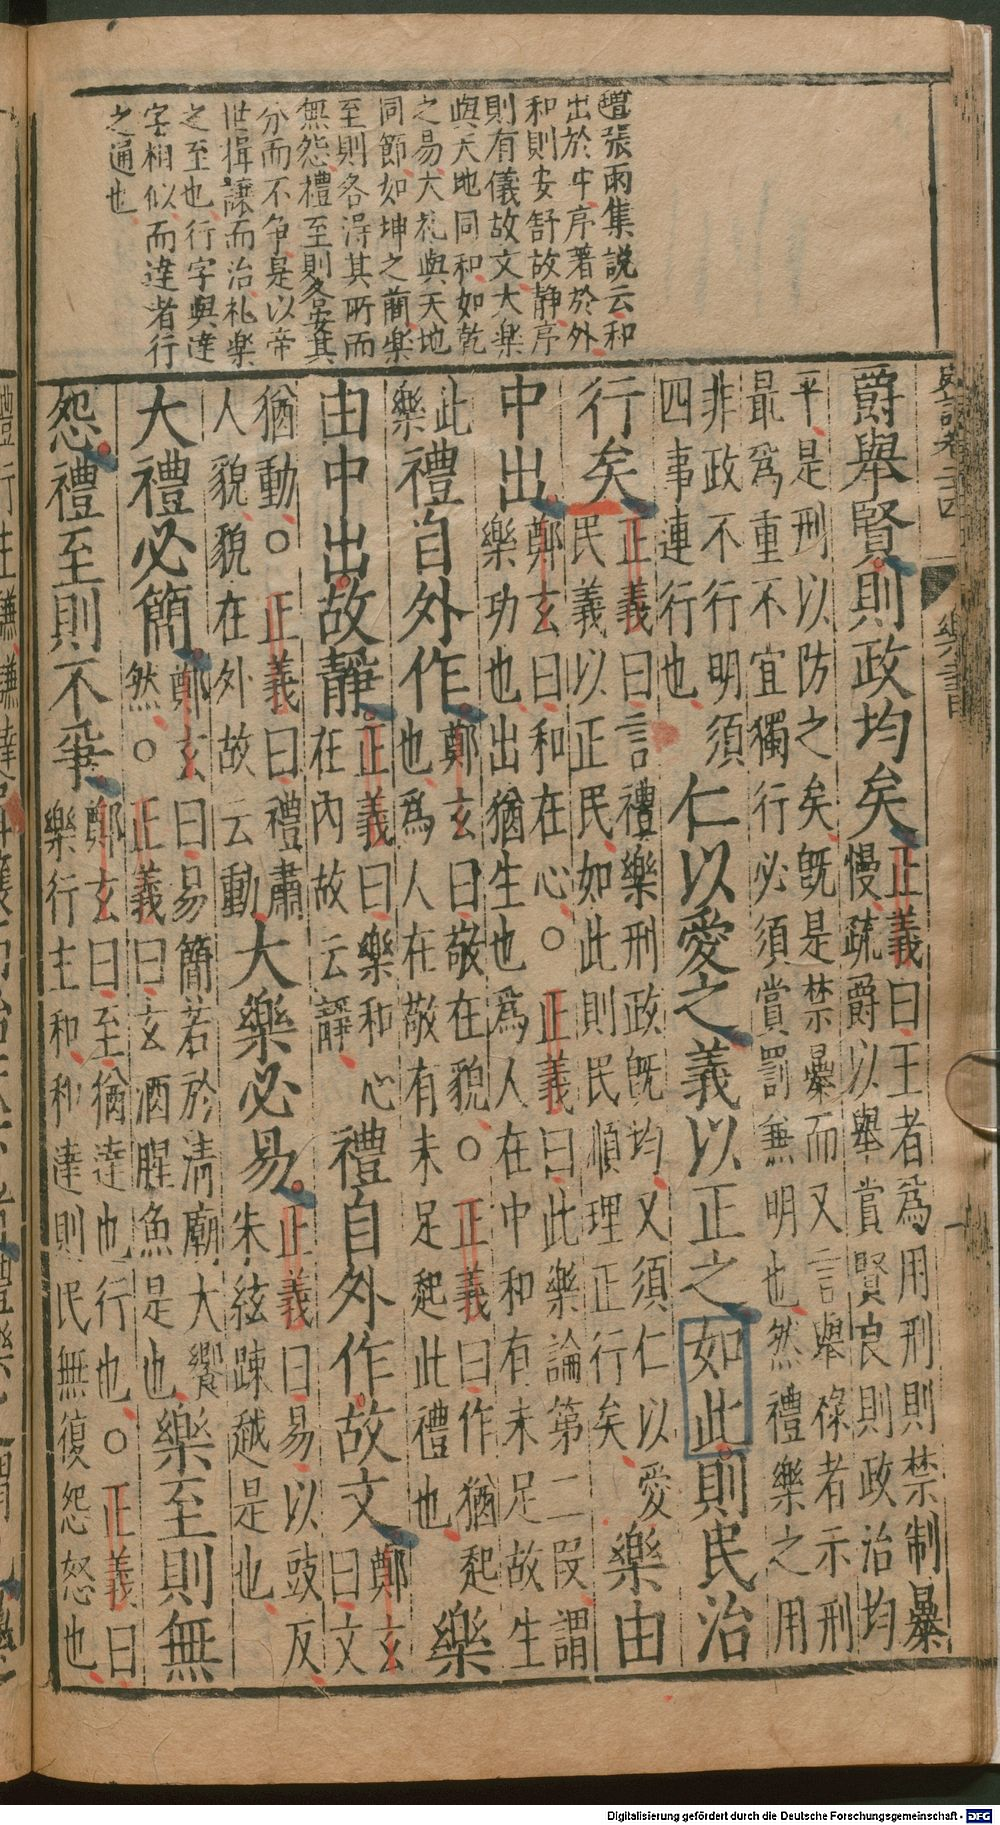 張雨集説云和
出於中序著於外
和則安舒故静序
則有儀故文大樂
與天地同和如乾
之易大礼與天地
同節如坤之簡樂
至則各得其所而
無怨禮至則各安其
分而不争是以帝
世揖譲而治礼樂
之至也行字與達
字相似而達者行
之通也
爵舉賢則政均矣
正義曰王者為用刑則禁制暴
慢疏爵以舉賞賢良則政治均
平是刑以防之矣既是禁暴而又言舉祿者示刑
最為重不宜獨行必須賞罰兼明也然禮樂之用
非政不行明須
四事連行也
仁以愛之義以正之如此則民治
行矣
正義曰言禮樂刑政既均又須仁以愛
民義以正民如此則民順理正行矣
樂由
中出
鄭玄曰和在心〇正義曰此樂論第二段謂
樂功也出猶生也為人在中和有未足故生
此
樂
禮自外作
鄭玄曰敬在貌〇正義曰作猶起
也為人在敬有未足起此禮也
樂
由中出故靜
正義曰樂和心
在內故云靜
禮自外作故文
鄭玄
曰文
猶動〇正義曰禮肅
人貌貌在外故云動
大樂必易
正義曰易以豉反
朱絃疎越是也
大禮必簡
鄭玄曰易簡若於清廟大饗
然〇正義曰玄酒腥魚是也
樂至則無
怨禮至則不爭
鄭玄曰至猶達也行也〇正義曰
樂行主和和達則民無復怨怒也
Digitalisierung gefördert durch die Deutsche Forschungsgemeinschaft - DFG